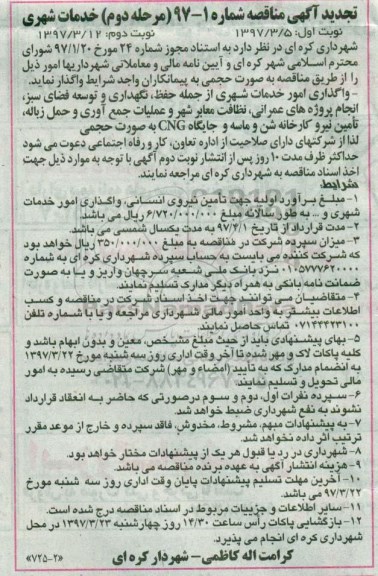 تجدید آگهی مناقصه شماره ۱-۹۷ (مرحله دوم) خدمات شهری
نوبت اول: ۱۳۹۷/۳/۵ نوبت دوم: ۱۳۹۷/۳/۱۲
شهرداری کره ای در نظر دارد به استناد مجوز شماره ۲۴ مورخ ۹۷/۱/۲۰ شورای
محترم اسلامی شهر کره ای و آیین نامه مالی و معاملاتی شهرداریها امور ذیل
را از طریق مناقصه به صورت حجمی به پیمانکاران واجد شرایط واگذار نماید.
- واگذاری امور خدمات شهری از جمله حفظ، نگهداری و توسعه فضای سبز،
انجام پروژه های عمرانی، نظافت معابر شهر و عملیات جمع آوری و حمل زباله،
تأمین نیرو کارخانه شن و ماسه و جایگاه CNG به صورت حجمی
لذا از شرکتهای دارای صلاحیت از اداره تعاون، کار و رفاه اجتماعی دعوت می شود
حداکثر ظرف مدت ۱۰ روز پس از انتشار نوبت دوم آگهی با توجه به موارد ذیل جهت
اخذ اسناد مناقصه به شهرداری کره ای مراجعه نمایند.
شرایط
۱- مبلغ برآورد اولیه جهت تأمین نیروی انسانی، واگذاری امور خدمات
شهری و ... به طور سالانه مبلغ ۶/۷۲۰/۰۰۰/۰۰۰ ریال می باشد.
۲- مدت قرارداد از تاریخ ۹۷/۴/۱ به مدت یکسال شمسی می باشد.
۳- میزان سپرده شرکت در مناقصه به مبلغ ۳۵۰/۰۰۰/۰۰۰ ریال خواهد بود
که شرکت کننده می بایست به حساب سپرده شهرداری کره ای به شماره
۰۱۰۵۷۷۷۶۲۰۰۰ نزد بانک ملی شعبه سرچهان واریز و یا به صورت
ضمانت نامه بانکی به همراه دیگر مدارک تسلیم نمایند.
۴- متقاضیان می توانند جهت اخذ اسناد شرکت در مناقصه و کسب
اطلاعات بیشتر به واحد امور مالی شهرداری مراجعه و یا با شماره تلفن
۰۷۱۴۴۴۲۳۱۰۰ تماس حاصل نمایند.
۵- بهای پیشنهادی باید از حیث مبلغ مشخص، معین و بدون ابهام باشد و
کلیه پاکات لاک و مهر شده تا آخر وقت اداری روز سه شنبه مورخ ۱۳۹۷/۳/۲۲
به انضمام مدارک که به تأیید (امضاء و مهر) شرکت متقاضی رسیده به امور
مالی تحویل و تسلیم نمایند.
۶- سپرده نفرات اول، دوم و سوم درصورتی که حاضر به انعقاد قرارداد
نشوند به نفع شهرداری ضبط خواهد شد.
۷- به پیشنهادات مبهم، مشروط، مخدوش، فاقد سپرده و خارج از موعد مقرر
ترتیب اثر داده نخواهد شد.
۸- شهرداری در رد یا قبول هر یک از پیشنهادات مختار خواهد بود.
۹- هزینه انتشار آگهی به عهده برنده مناقصه می باشد.
۱۰- آخرین مهلت تسلیم پیشنهادات پایان وقت اداری روز سه شنبه مورخ
۹۷/۳/۲۲ می باشد.
۱۱- سایر اطلاعات و جزییات مربوط در اسناد مناقصه درج شده است.
۱۲- بازگشایی پاکات رأس ساعت ۱۴/۳۰ روز چهارشنبه ۱۳۹۷/۳/۲۳ در محل
شهرداری کره ای انجام می پذیرد.
کرامت اله کاظمی- شهردار کره ای
«۷۲۵-۲»